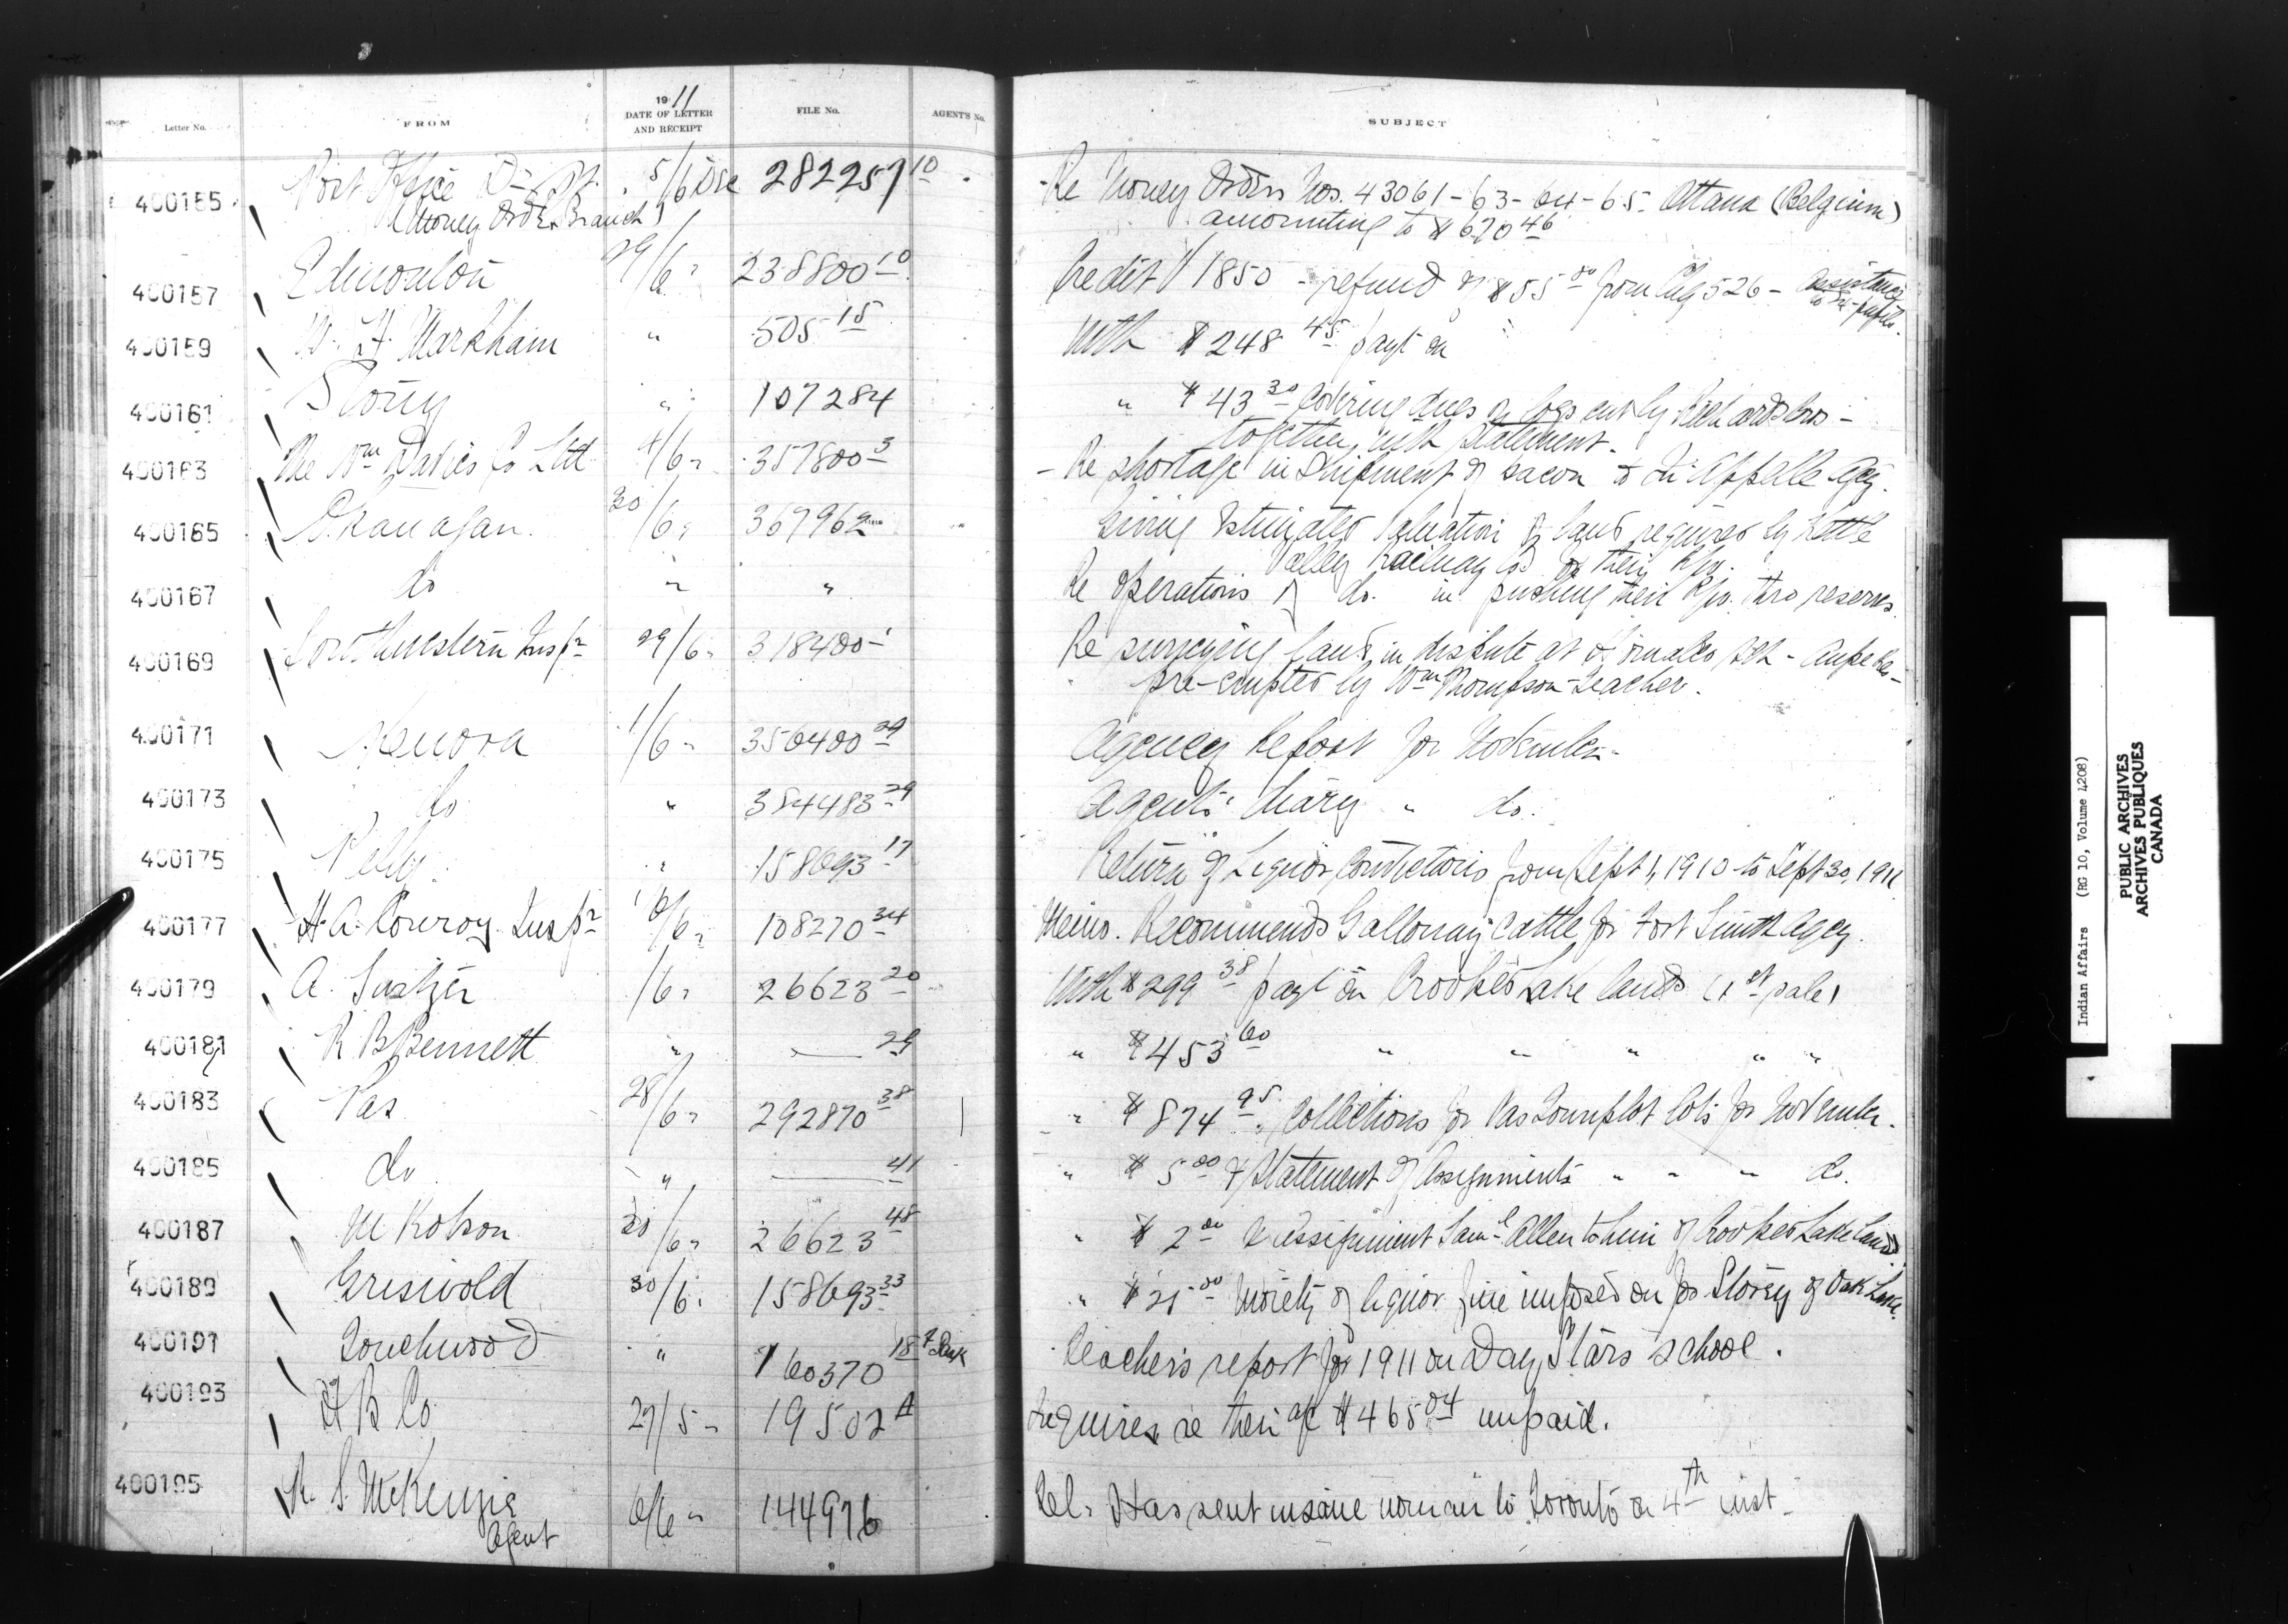 Letter No. FROM 1911 DATE OF LETTER AND RECEIPT FILE No. AGENT'S No. SUBJECT
400155 Post Office Dept. 5/6 Dec 282257 10 Re Money Orders Nos. 43061-63-64-65 Ottawa (Belgium)
(Money Order Branch) amounting to $670 46
400157 Edmonton 29/6 " 238800 10 Credit 1850 - refund of $55 00 from Chq 526 - assistance
to ex-pupils.
400159 W. F. Markham " 505 15 With $248 45 payt on
400161 Stony " 107284 " $43 30 covering dues on logs cut by Richards Bros -
together with statement.
400163 The Wm Davies Co Ltd 4/6 " 357800 3 - Re shortage in shipment of bacon to Qu'Appelle Agcy.
400165 Okanagan. 30/6 " 367962 Giving estimated valuation of land required by Kettle
Valley Railway Co for their R/w.
400167 do " " Re operations of do. in pushing their R/w. thro reserves.
400169 Southwestern Inspr 29/6 " 318400 1 Re surveying land in dispute at
pre-empted by Wm Thompson - teacher.
400171 Kenora 1/6 " 356400 29 Agency Report for November -
400173 do " 384483 29 Agent's Diary " do.
400175 Pelly " 158693 17 Return of Liquor Convictions from Sept 1, 1910 to Sept 30, 1911
400177 H. A. Conroy Inspr 6/6 " 108270 34 Memo. Recommends Galloway cattle for Fort Smith Agcy.
400179 A. Switzer 1/6 " 26623 20 With $299 38 payt on Crooked Lake lands (1st sale)
400181 R B Bennett " — 29 " $453 60 " " " " "
400183 Pas 28/6 " 292870 38 " $874 95 Collections for Pas Townplot lots for November.
400185 do " — 41 " $5 00 & statement of assignments " " " do.
400187 M Robson 30/6 " 26623 48 " $2 00 & assignment Saml Allen to him of Crooked Lake lands
400189 Griswold 30/6 " 158693 33 " $25 00 moiety of liquor fine imposed on Jos Storey of Oak Lake.
400191 Touchwood " 160370 18 Teacher's report for 1911 on Day Stars school.
400193 H B Co 27/5 " 19502 A Inquires re their a/c $465 04 unpaid.
400195 R. S. McKenzie 6/6 " 144976 Tel. Has sent insane woman to Toronto on 4th inst -
Agent
Indian Affairs (RG 10, Volume 4208)
PUBLIC ARCHIVES
ARCHIVES PUBLIQUES
CANADA